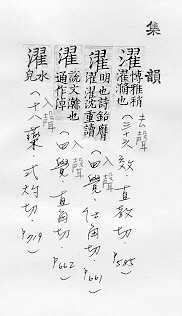 集韻
濯 博雅稍濯滫也 去聲(三十六效·直教切·P585)
濯 明也詩鉤膺濯濯沈重讀 入聲(四覺·仕角切·P661)
濯 說文澣也通作淖 入聲(四覺·直角切·P662)
濯 水皃 入聲(十八藥·式灼切·P719)